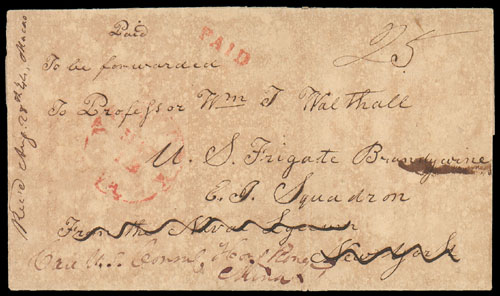 Paid
PAID
25
To be forwarded
To Professor Wm T Walthall
U. S. Frigate Brandywine
E. I. Squadron
New York
Care U.S. Consul, Hong Kong
China
Rec'd Aug 28th 44, Macao